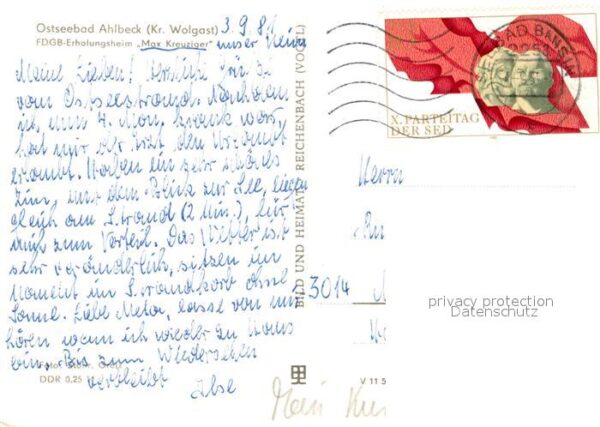 Ostseebad Ahlbeck (Kr. Wolgast) 3.9.81
FDGB-Erholungsheim „Max Kreuziger" unser Heim
Meine Lieben! Herzliche Grüße
vom Ostseestrand. Nachdem
ich, nun 4. Mon. krank war,
hat mir der Arzt den Urlaub
erlaubt. Haben ein sehr schönes
Zim., mit dem Blick zur See, liegen
gleich am Strand (2 Min.), für
mich zum Vorteil. Das Wetter ist
sehr veränderlich, sitzen im
Moment im Strandkorb ohne
Sonne. Liebe Meta, lasse von mir
hören wenn ich wieder zu Haus
bin. Bis zum Wiedersehen
verbleibt Ilse
Foto:
DDR 0,25
BILD UND HEIMAT REICHENBACH (VOGTL)
V 11 5
X. PARTEITAG
DER SED
BAD BANSIN
Herrn
3014
privacy protection
Datenschutz
Mein